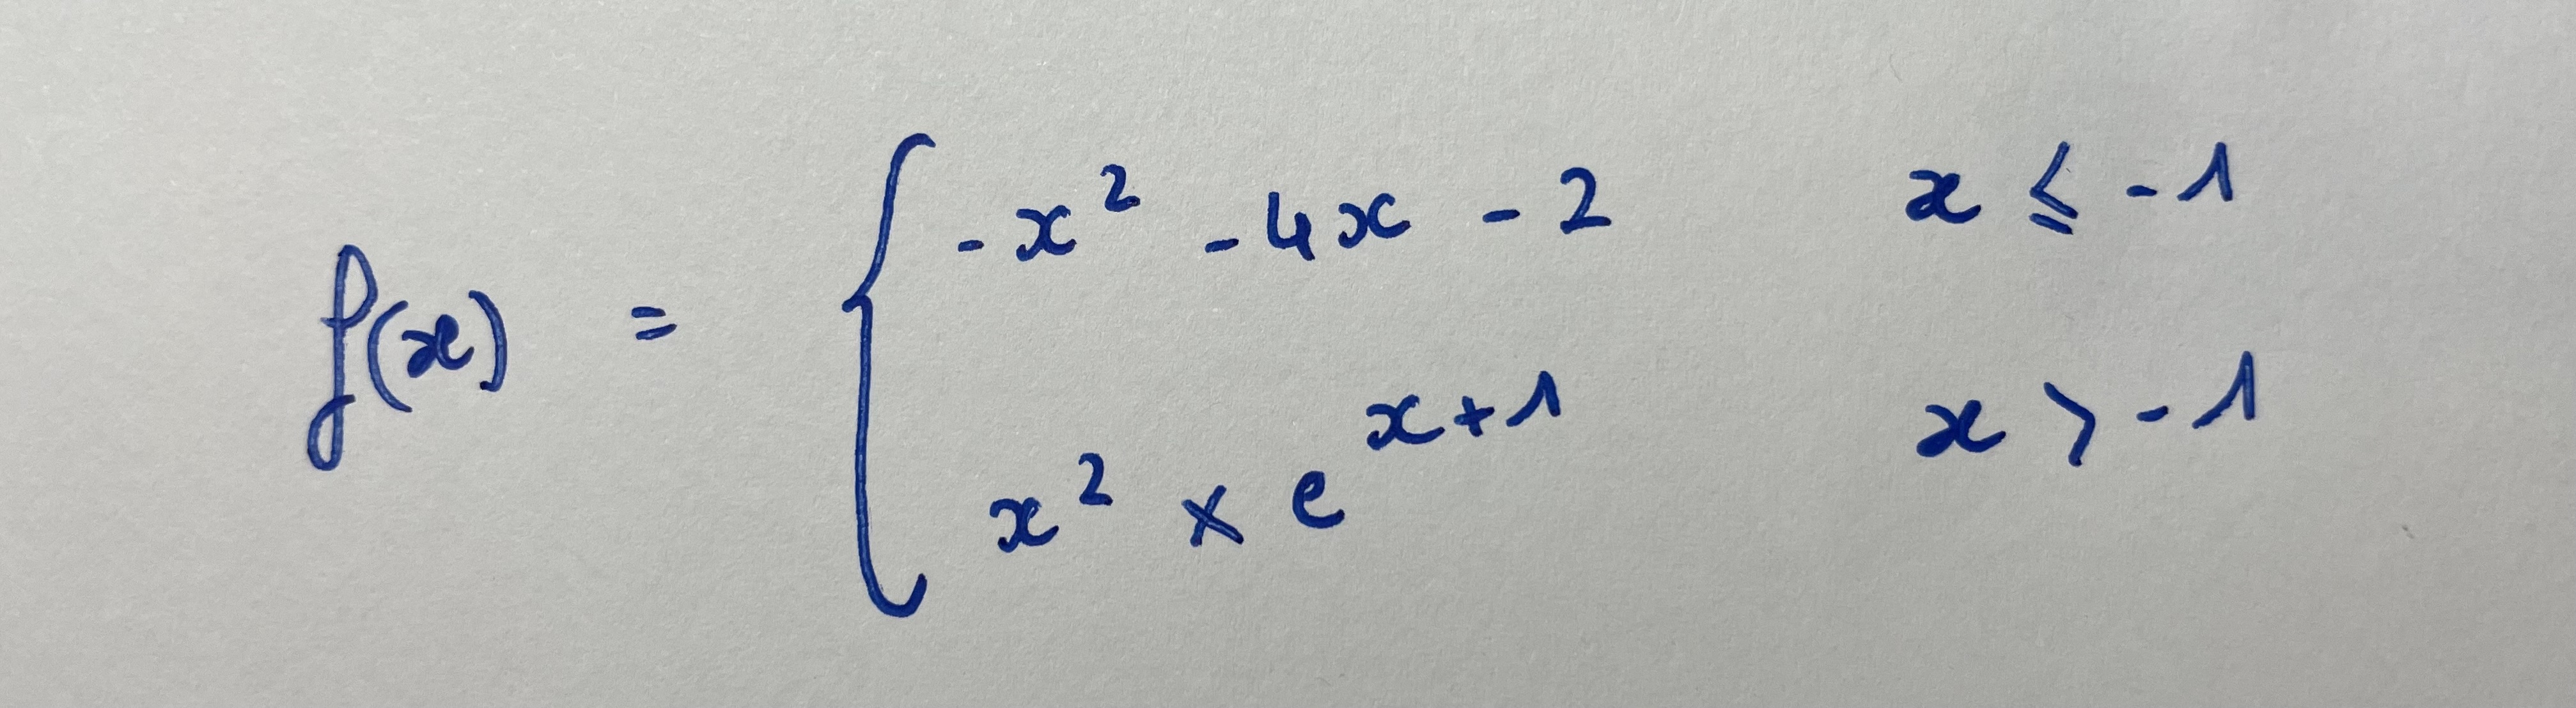 f(x) = { -x² -4x - 2    x ≤ -1
x² × e^{x+1}    x > -1